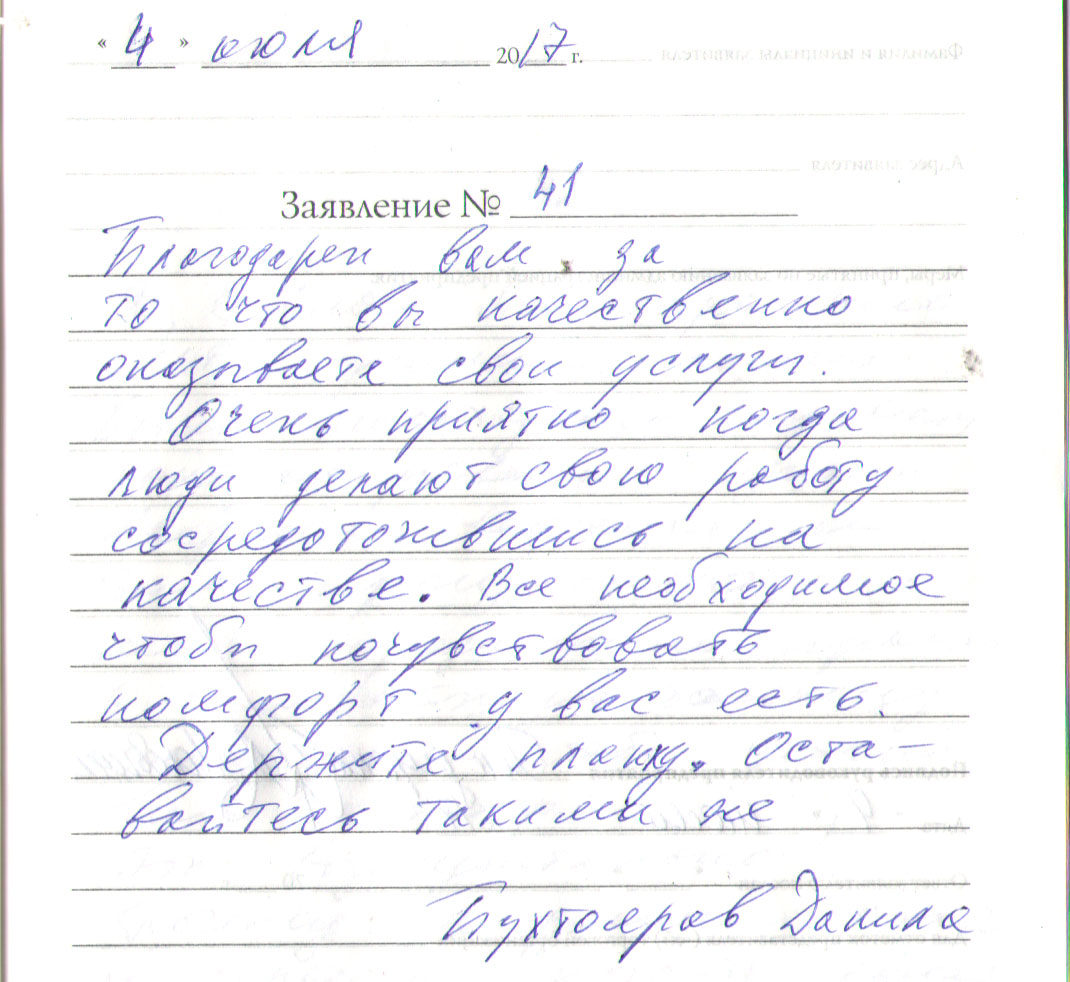 « 4 » июля 2017 г.
Заявление № 41
Благодарен вам за
то что вы качественно
оказываете свои услуги.
Очень приятно когда
люди делают свою работу
сосредоточившись на
качестве. Все необходимое
чтобы почувствовать
комфорт у вас есть.
Держите планку. Оста-
вайтесь такими же
Пухтояров Данила